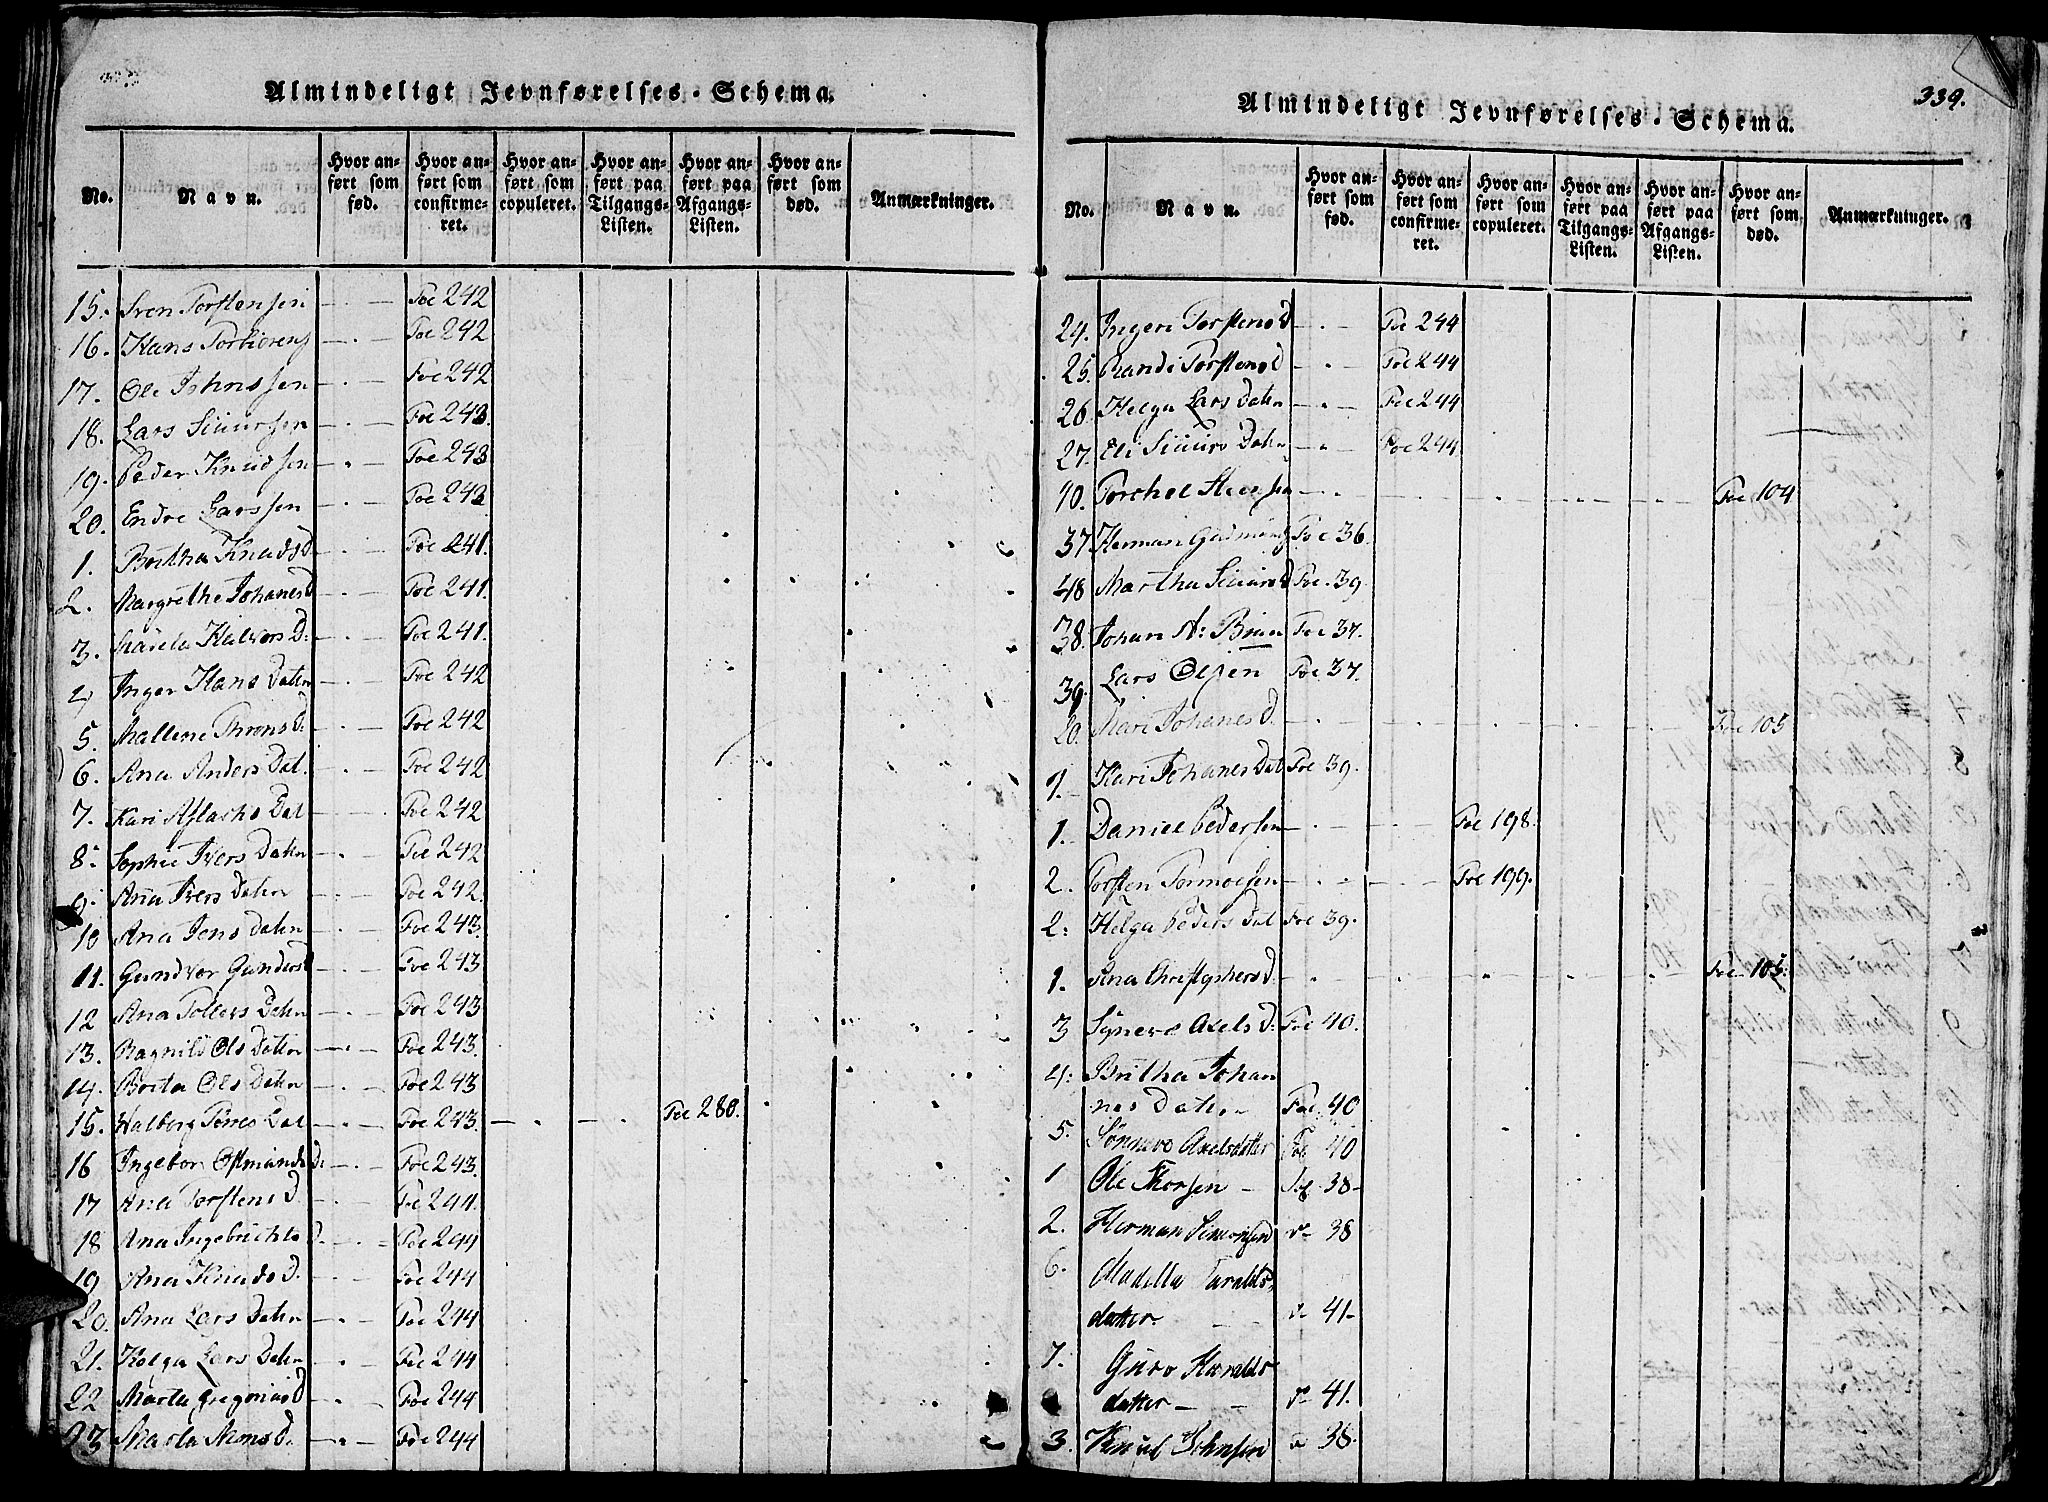 Almindeligt Jevnførelses-Schema.
No.
Navn.
Hvor an-
ført som
fød.
Hvor an-
ført som
confirme-
ret.
Hvor an-
ført som
copuleret.
Hvor an-
ført paa
Tilgangs-
Listen.
Hvor an-
ført paa
Afgangs-
Listen.
Hvor an-
ført som
død.
Anmærkninger.
15. Sven Torstensen — . — Foe 242
16. Hans Torbiørens — . — Foe 242
17. Ole Johnssen — . — Foe 242
18. Lars Siuursen — . — Foe 243.
19. Peder Knudsen — . — Foe 243
20. Endre Larssen — . — Foe 243
1. Britha Knudsd — . — Foe 241.
2. Margrethe Johanesd — . — Foe 241.
3. Halvors D: — . — Foe 241.
4 Inger Hans Datn — . — Foe 242
5. Mallene Throns D: — . — Foe 242
6. Ana Anders Dat. — . — Foe 242
7. Kari Aslachs Dat — . Foe 242
8. Sophie Ivers Datn — . — Foe 242
9. Ana Ivers Datn — . — Foe 242.
10 Ana Jens Datn — . — Foe 243.
11. Gundvor Gundersd — . — Foe 243
12 Ana Tollevs Datn — . — Foe 243
13. Ragnild Ols Datn — . — Foe 243.
14. Brita Ols Datn — . — Foe 243
15. Valborg Tørres Dat — . — Foe 243. — . — . — Foe 280.
16 Ingebor Osmunds D: — . — Foe 243.
17 Ana Torstens D. — . — Foe 244.
18 Ana Ingebrichts D. — . — Foe 244
19 Ana Knuds D. — . — Foe 244
20. Ana Lars Datn — . — Foe 244
21. Helga Lars Datn — . — Foe 244
22 Marta D — . — Foe 244
23 Marta D. — . — Foe 244
339.
Almindeligt Jevnførelses-Schema.
No.
Navn.
Hvor an-
ført som
fød.
Hvor an-
ført som
confirme-
ret.
Hvor an-
ført som
copuleret.
Hvor an-
ført paa
Tilgangs-
Listen.
Hvor an-
ført paa
Afgangs-
Listen.
Hvor an-
ført som
død.
Anmærkninger.
24. Ingeri Torstensd — . — Foe 244
25. Randi Torstensd — . — Foe 244
26 Helga Lars Datn — . — Foe 244
27. Eli Siuurs Datn — . — Foe 244
10. Torchel — . — Foe 104
37 Herman Foe 36.
48 Martha Siuursd Foe. 39.
38. Johan A: Bruun Foe 37.
39. Lars Olsen Foe 37.
20. Mari Johanes D. — . — Foe 105
1. Kari Johanes Dat Foe 39.
1. Daniel Pedersen — . — Foe 198.
2. Torsten Tormoesen — . — Foe 199.
2: Helga Peders Dat Foe 39.
1. Ana Christophersd. — . — Foe 105.
3 Syneve Axels D: Foe 40.
4: Britha Johan
nes Datn — Foe. 40
5. Sønneve Axelsdatter Fol 40
1 Ole Thorsen — Fol. 38 —
2. Herman Simonsen do 38
6. Madella Taralds
datter. — do 41 —
7. Guro Haralds
datter — — do 41.
3. Knud Johnsen do 38.